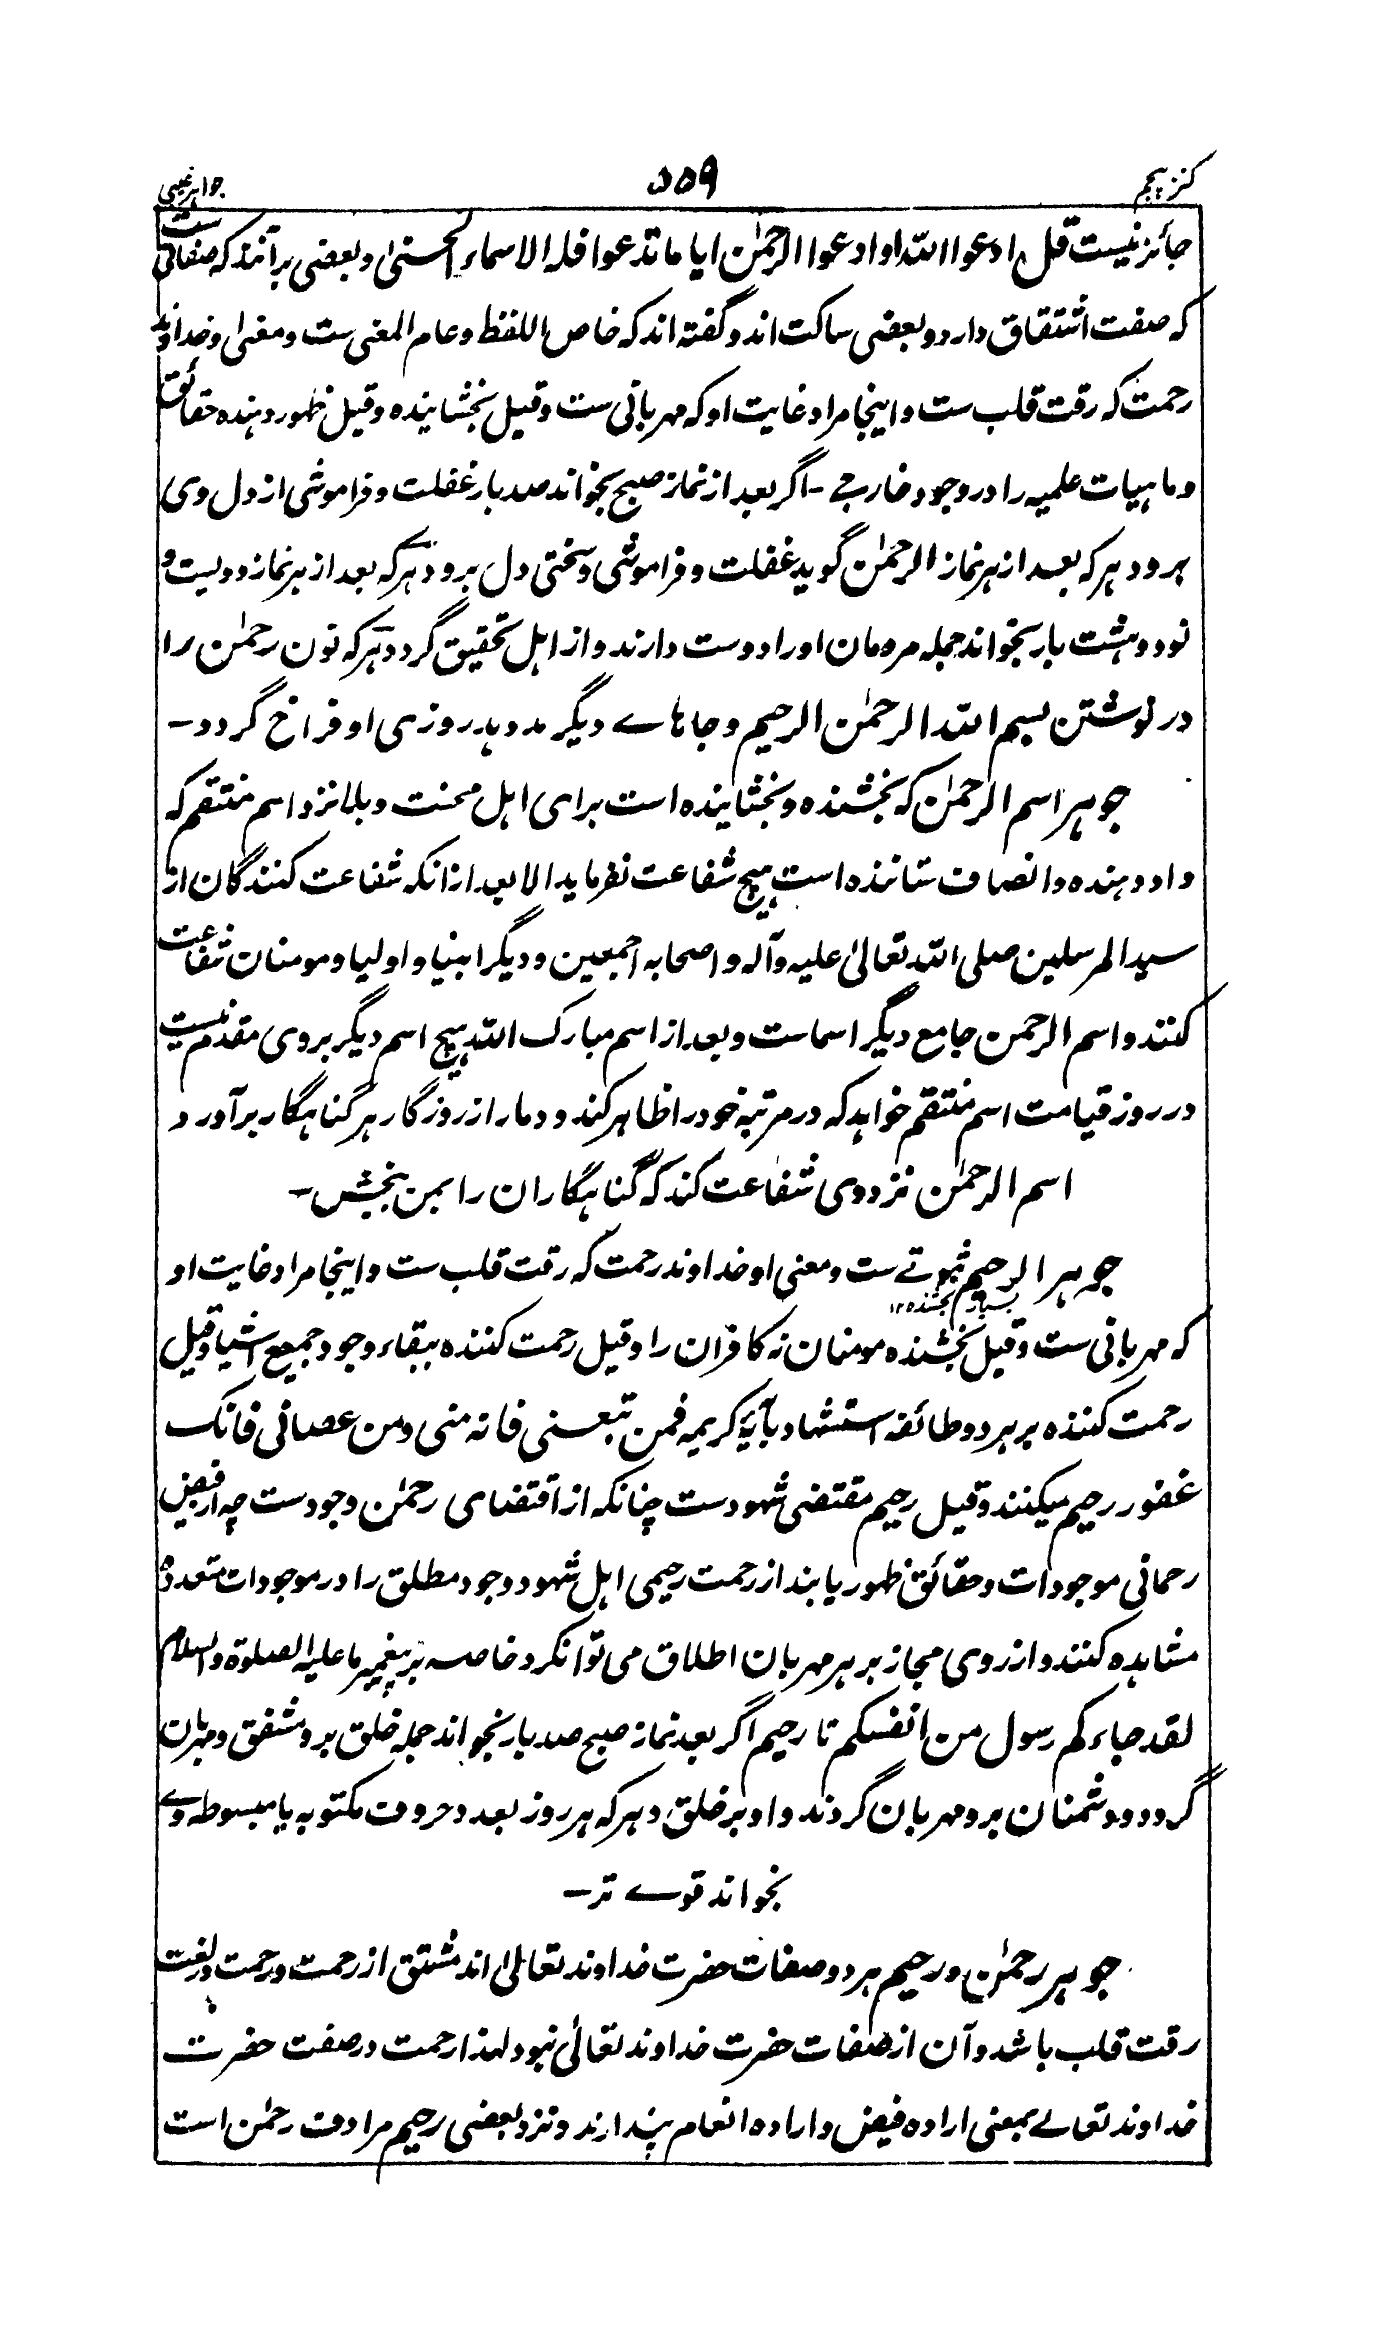 کنز پنجم ۵۵۹ جواهر غیبی
جائز نیست قل ادعوا الله او ادعوا الرحمٰن ایا ما تدعوا فله الاسماء الحسنیٰ و بعضی برآنند که صفاتی ست
که صفت اشتقاق دارد و بعضی ساکت اند و گفته اند که خاص اللفظ و عام المعنی ست و معنی او خداوند
رحمت که رقت قلب ست و اینجا مراد غایت او که مهربانی ست و قیل بخشاینده و قیل ظهور دهنده حقائق
و ماهیات علمیه را در وجود خارجے - اگر بعد از نماز صبح بخواند صد بار غفلت و فراموشی از دل وی
برود هر که بعد از هر نماز الرحمٰن گوید غفلت و فراموشی و سختی دل برود هر که بعد از هر نماز دویست و
نود و هشت بار بخواند جمله مردمان او را دوست دارند و از اهل تحقیق گردد هر که نون رحمٰن را
در نوشتن بسم الله الرحمٰن الرحیم و جاهاے دیگر مد دهد روزی او فراخ گردد -
جوهر اسم الرحمٰن که بخشنده و بخشاینده است برای اهل محنت و بلا نزد اسم منتقم که
داد دهنده و انصاف ستاننده است هیچ شفاعت نفرماید الا بعد ازانکه شفاعت کنندگان از
سید المرسلین صلی الله تعالیٰ علیه و آله و اصحابه اجمعین و دیگر انبیا و اولیا و مومنان شفاعت
کنند و اسم الرحمن جامع دیگر اسماست و بعد از اسم مبارک الله هیچ اسم دیگر بر وی مقدم نیست
در روز قیامت اسم منتقم خواهد که در مرتبۀ خود را ظاهر کند و دمار از روزگار هر گناهگار برآورد
اسم الرحمٰن نزد وی شفاعت کند که گناهگاران را بمن بخش -
جوهر الرحیم ثبوتے ست و معنی او خداوند رحمت که رقت قلب ست و اینجا مراد غایت او
بسیار بخشنده ۱۲
که مهربانی ست و قیل بخشنده مومنان نه کافران را و قیل رحمت کننده ببقاء وجود جمیع اشیا و قیل
رحمت کننده بر هر دو طائفه استشهاد بآیۀ کریمه فمن تبعنی فانه منی و من عصانی فانک
غفور رحیم میکنند و قیل رحیم مقتضی شهودست چنانکه از اقتضای رحمٰن وجودست چه از فیض
رحمانی موجودات و حقائق ظهور یابند از رحمت رحیمی اهل شهود وجود مطلق را در موجودات متعدده
مشاهده کنند و از روی مجاز بر هر مهربان اطلاق می توانکرد خاصه بر پیغمبر ما علیه الصلوة والسلام
لقد جاءکم رسول من انفسکم تا رحیم اگر بعد نماز صبح صد بار بخواند جمله خلق برو مشفق و مهربان
گردد و دشمنان برو مهربان گردند و او بر خلق و هر که هر روز بعدد حروف مکتوبه یا مبسوطه وے
بخواند قوے تر -
جوهر رحمٰن و رحیم هر دو صفات حضرت خداوند تعالیٰ اند مشتق از رحمت و رحمت در لغت
رقت قلب باشد و آن از صفات حضرت خداوند تعالیٰ نبود لهذا رحمت در صفت حضرت
خداوند تعالے بمعنی اراده فیض و اراده انعام پندارند و نزد بعضی رحیم مرادف رحمٰن است